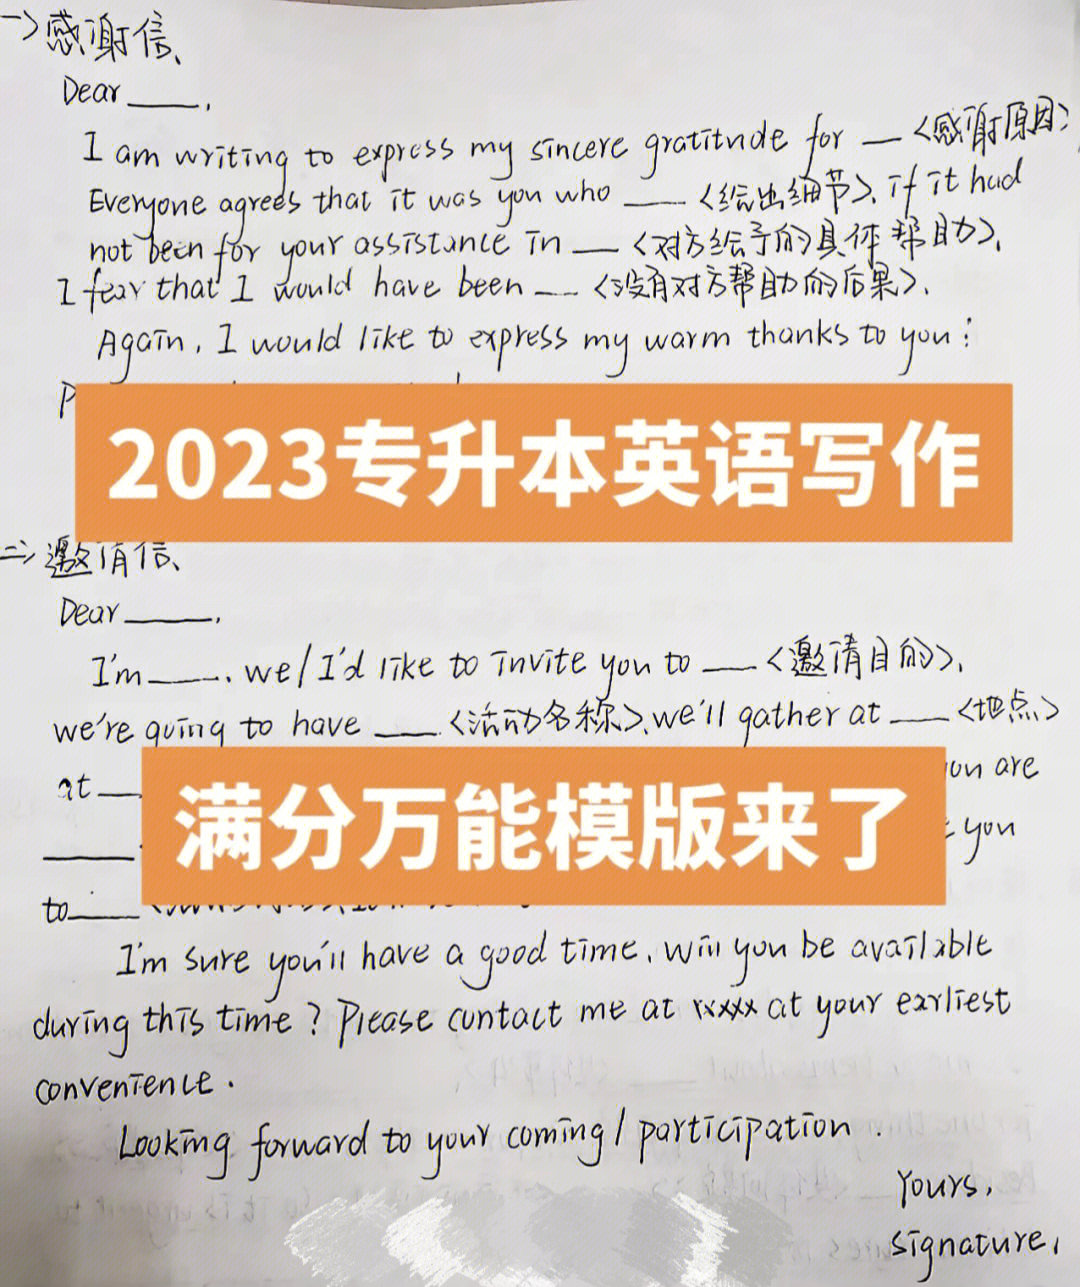 一>感谢信、
Dear ____,
I am writing to express my sincere gratitude for __ <感谢原因>
Everyone agrees that it was you who ___ <给出细节>, if it had
not been for your assistance in __ <对方给予的具体帮助>,
I fear that I would have been __ <没有对方帮助的后果>.
Again, I would like to express my warm thanks to you!
2023专升本英语写作
二>邀请信、
Dear ____,
I'm ____, we/I'd like to invite you to ___ <邀请目的>,
we're going to have ___ <活动名称>, we'll gather at ___ <地点>
at __ are
满分万能模版来了
____ you
to ____
I'm sure you'll have a good time, will you be available
during this time? Please contact me at xxxxx at your earliest
convenience.
Looking forward to your coming/participation.
Yours,
signature,